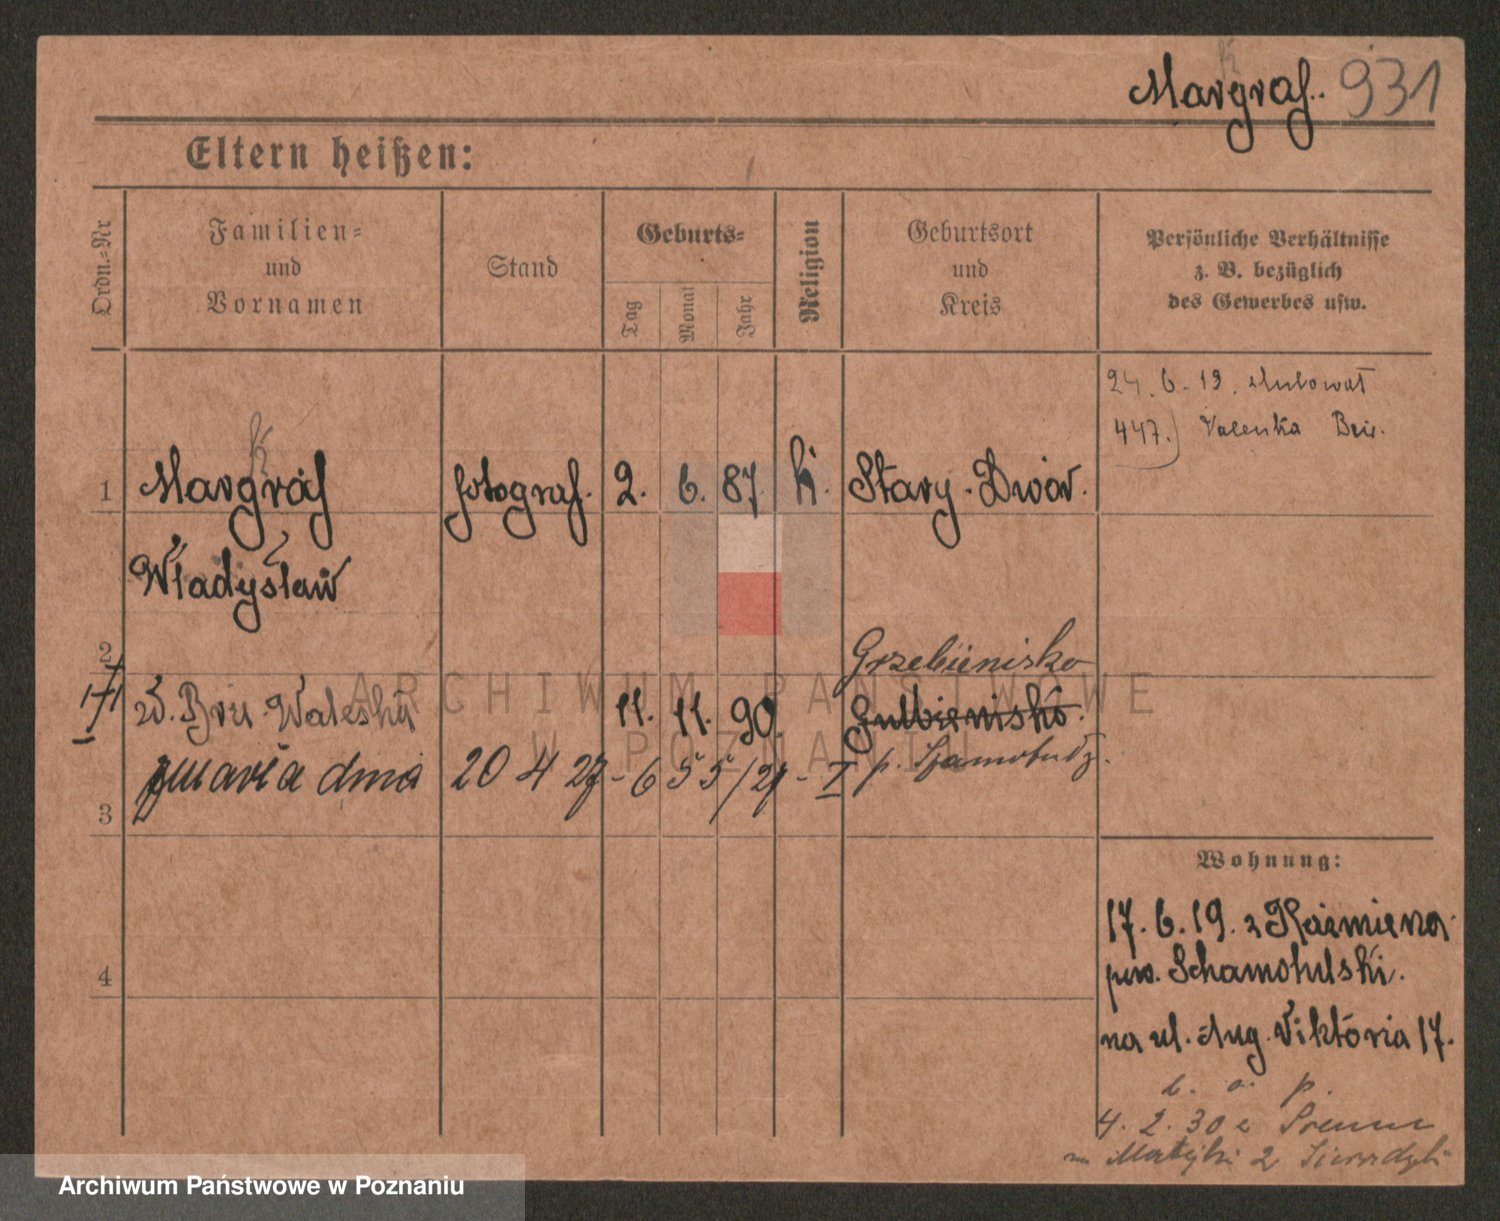 Margraf. 931
Eltern heißen:
Ordn.-Nr
Familien-
und
Vornamen
Stand
Geburts-
Tag
Monat
Jahr
Religion
Geburtsort
und
Kreis
Persönliche Verhältnisse
z. B. bezüglich
des Gewerbes usw.
24. 6. 19.
447.)
1 Margraf fotograf. 2. 6. 87. k. Stary-Dwór.
Władysław
2
Grzebienisko
ż. Waleska 11. 11. 90. Gulbienisko.
zmarła dnia 20 4 27 - 655/27 - I p.
3
Wohnung:
17. 6. 19. z Kaźmierza
pow. Schamotulski.
4
na ul. Aug. Viktoria 17.
4. 2. 30 z
Matejki 2
ARCHIWUM PAŃSTWOWE
W POZNANIU
Archiwum Państwowe w Poznaniu